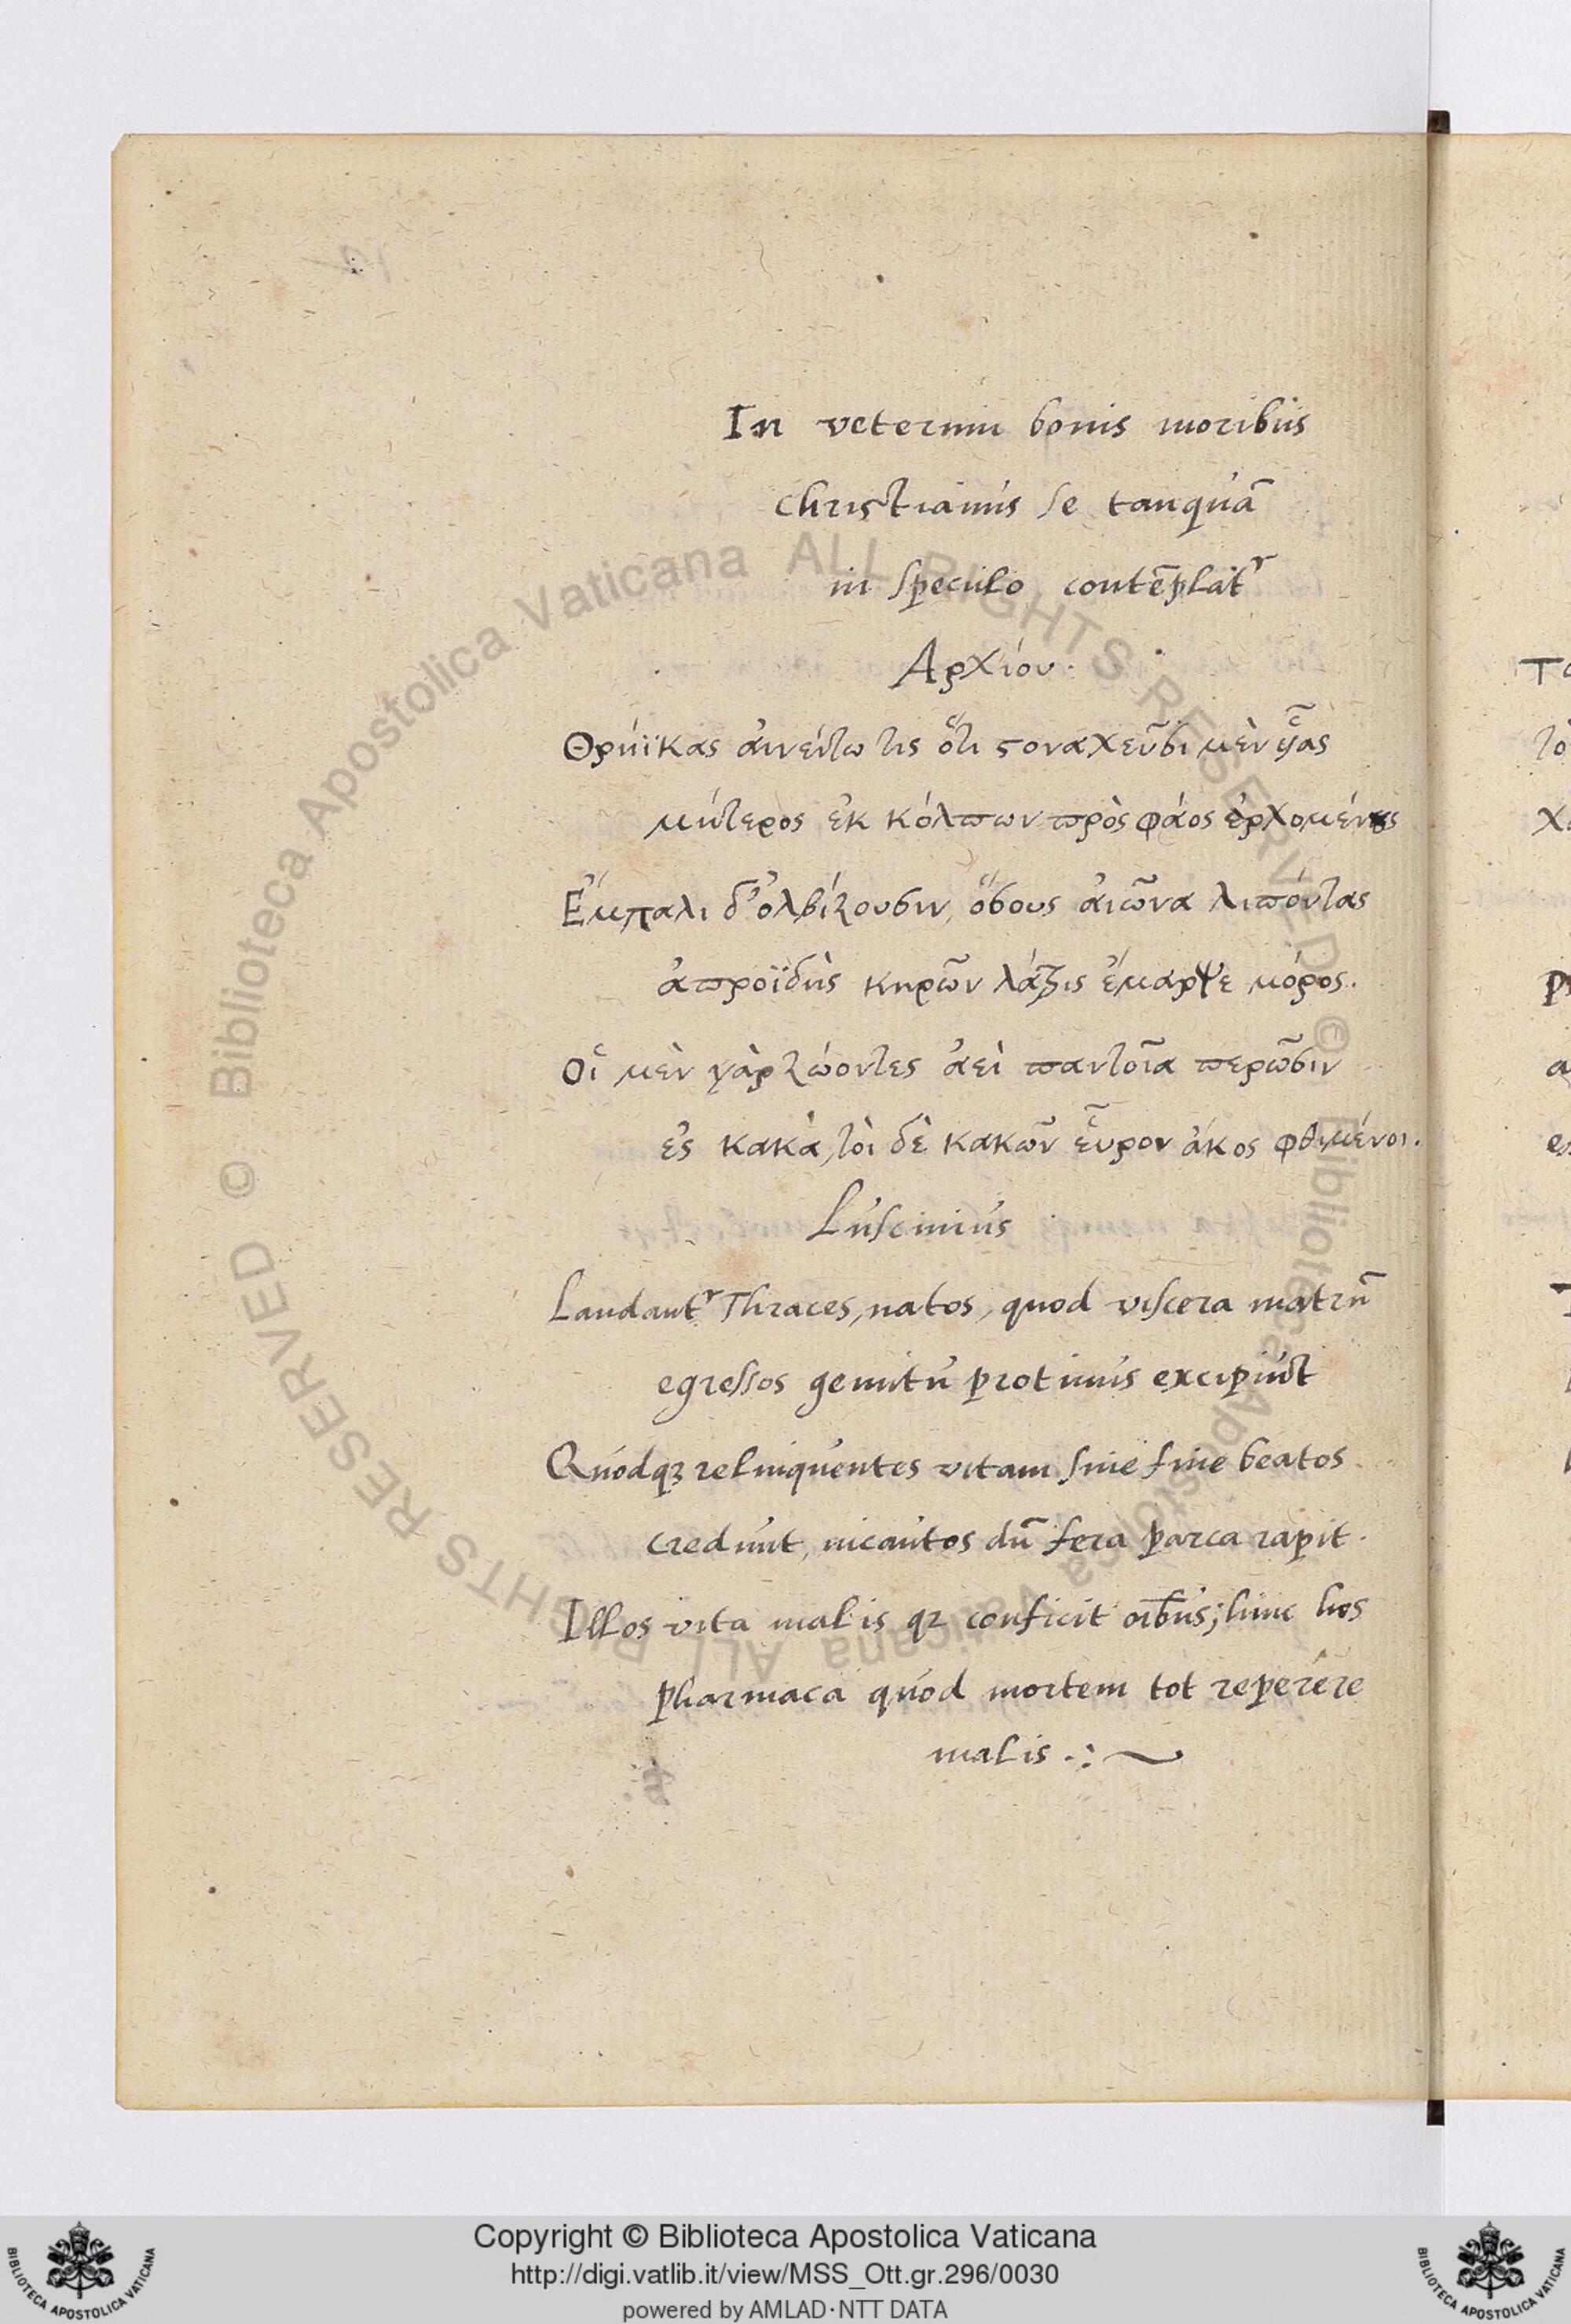 In veterum bonis moribus
christianus se tanquā
in speculo contēplatr
Αρχίου.
Θρήϊκας ἀινείτω τις ὅτι στοναχεῦσι μὲν ὑῖ̔ας
μήτερος ἐκ κόλπων πρὸς φάος ἐρχομένους
Ἔμπαλι δ' ὀλβίζουσιν, ὅσους ἀιῶνα λιπόντας
ἀπροϊδὴς κηρῶν λάτρις ἔμαρψε μόρος.
Οἱ μὲν γὰρ ζώοντες ἀεὶ παντοῖα περῶσιν
ἐς κακὰ, τοὶ δὲ κακῶν εὗρον ἄκος φθιμένοι.
Luscinius
Laudantr Thraces, natos, quod viscera matrū
egressos gemitu protinus excipiūt
Quodqz relinquentes vitam sine fine beatos
credunt, incautos dū fera parca rapit.
Illos vita malis qz conficit oib̄us; hinc hos
pharmaca quod mortem tot reperere
malis .:~
Biblioteca Apostolica Vaticana ALL RIGHTS RESERVED ©
Biblioteca Apostolica Vaticana ALL RIGHTS RESERVED ©
Copyright © Biblioteca Apostolica Vaticana
http://digi.vatlib.it/view/MSS_Ott.gr.296/0030
powered by AMLAD·NTT DATA
BIBLIOTECA APOSTOLICA VATICANA
BIBLIOTECA APOSTOLICA VATICANA